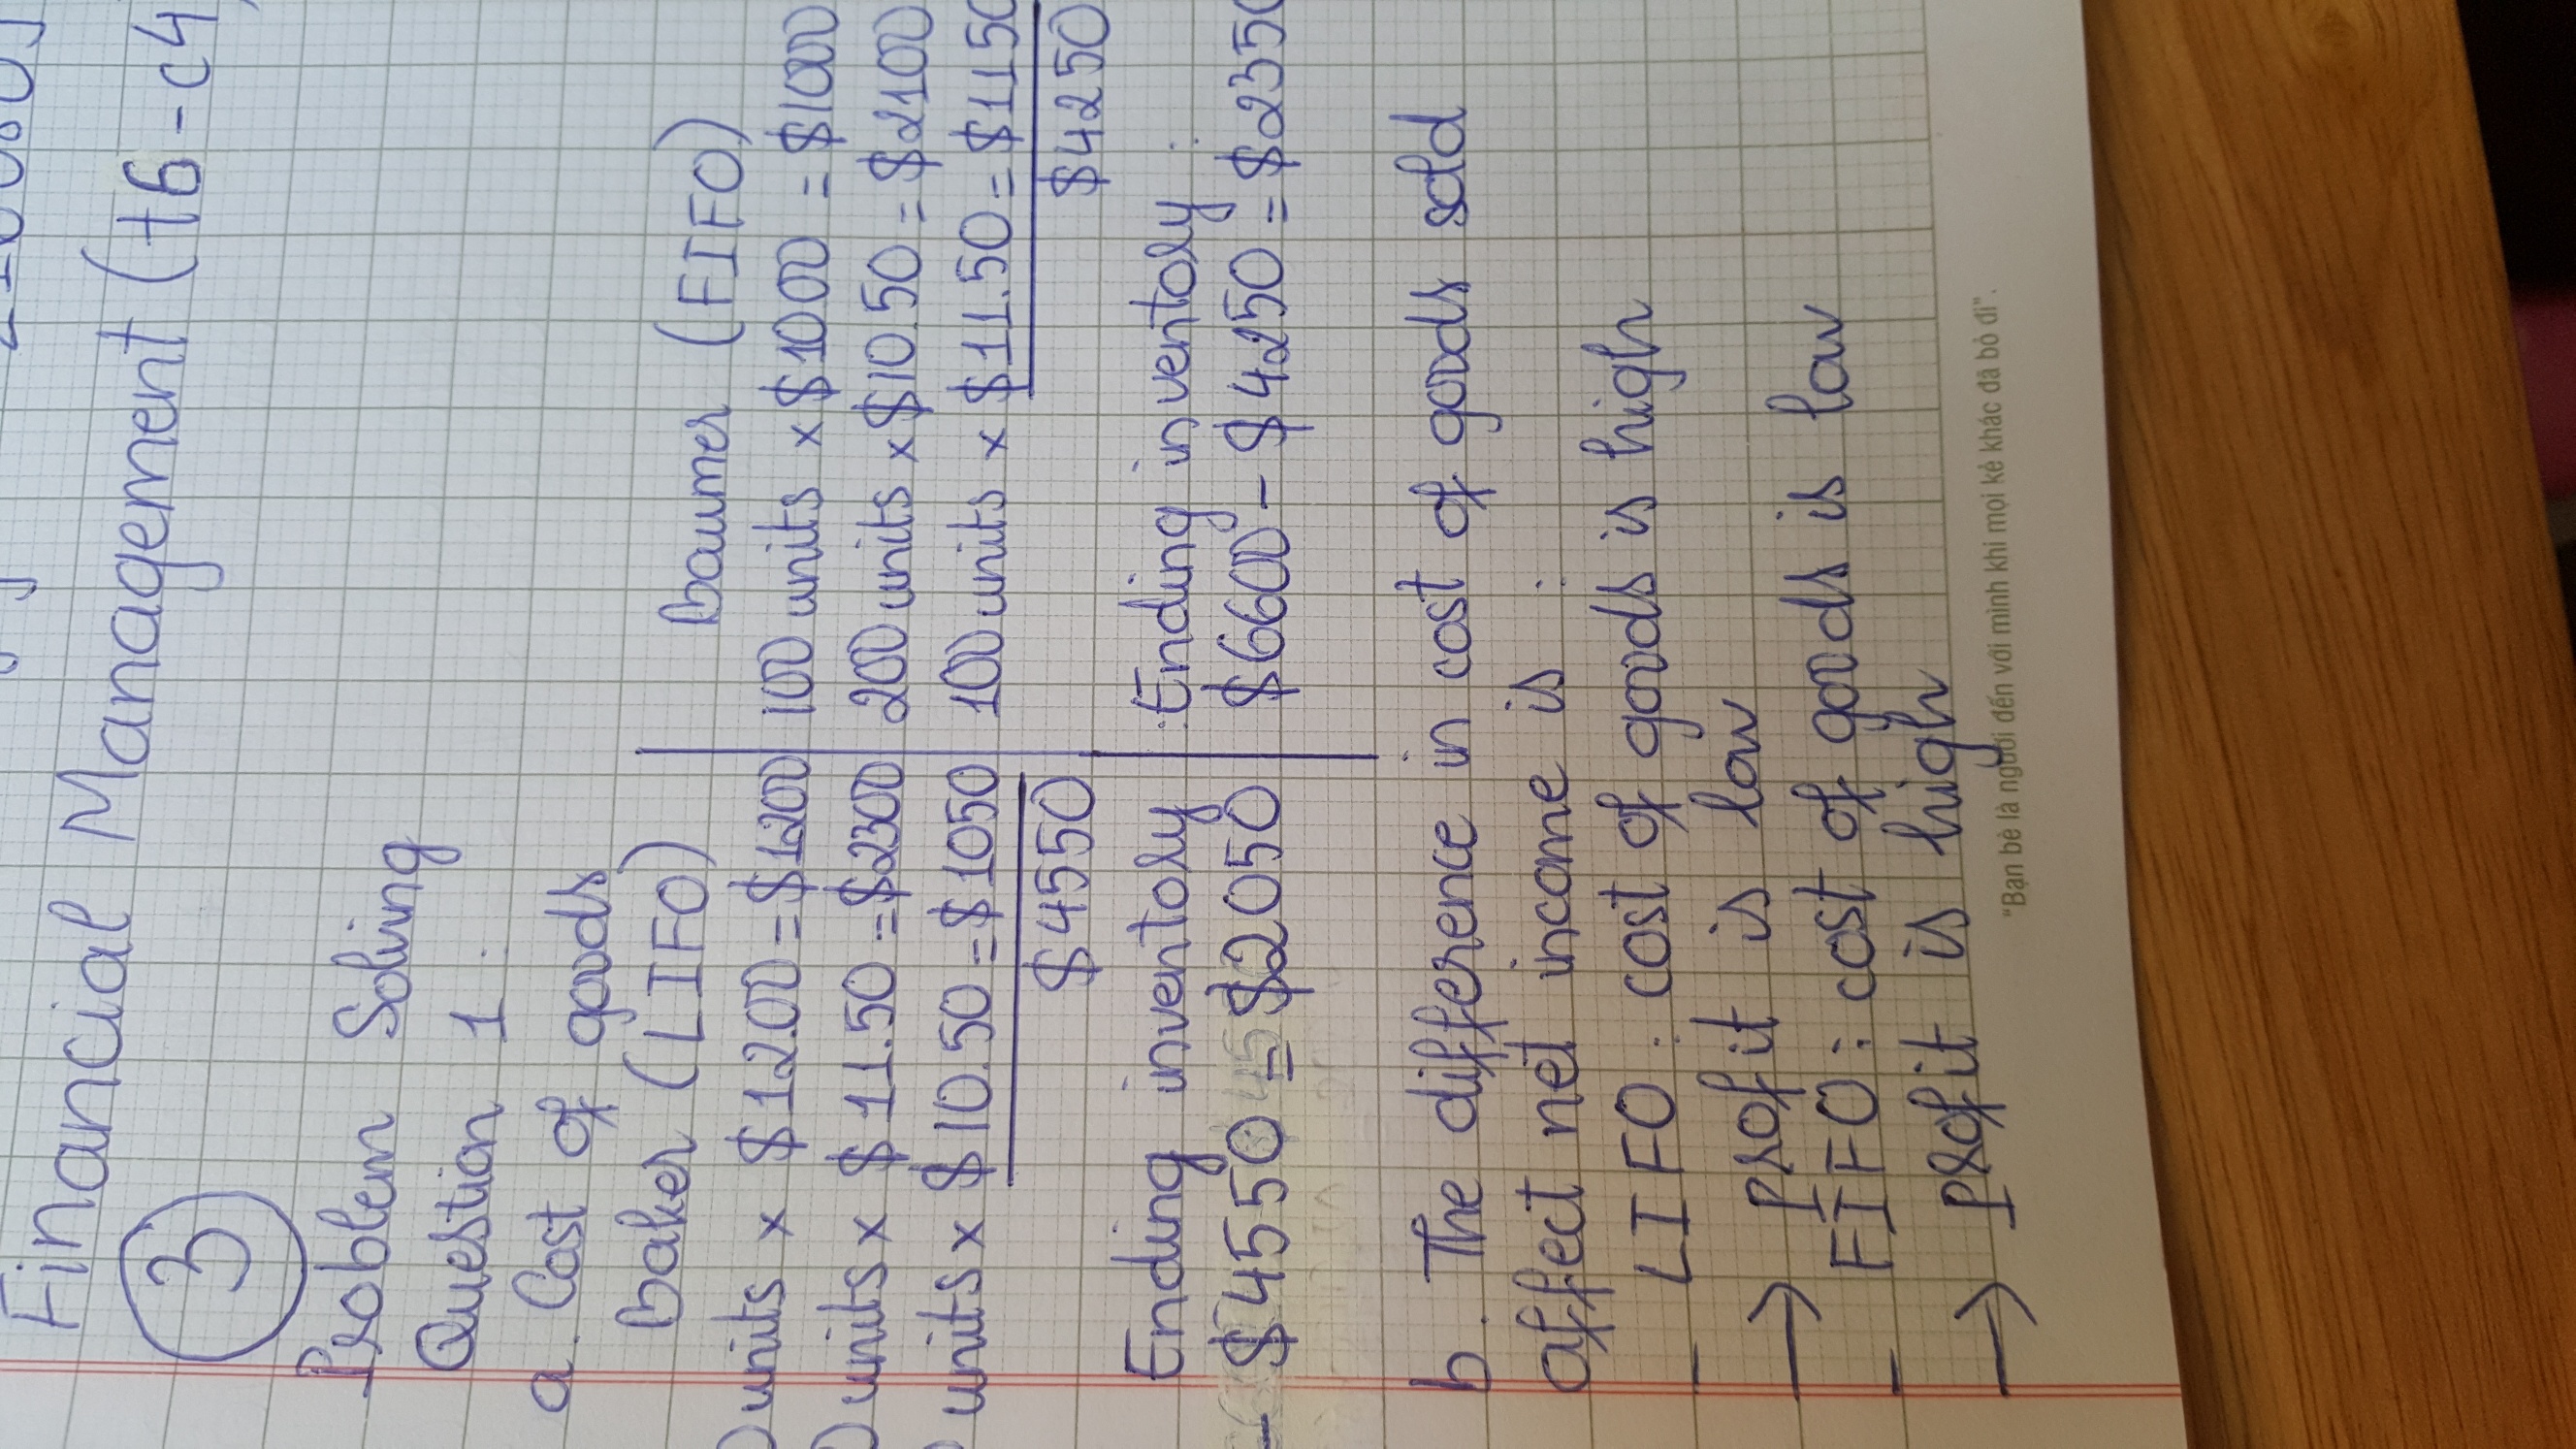 Financial Management (t6-c4
3
Problem Solving
Question 1:
a. Cost of goods
Baker (LIFO)
units x $12.00 = $1200
units x $11.50 = $2300
units x $10.50 = $1050
$4550
Ending inventory
- $4550 = $2050
Baumer (FIFO)
100 units x $10.00 = $1000
200 units x $10.50 = $2100
100 units x $11.50 = $1150
$4250
Ending inventory:
$6600 - $4250 = $2350
b. The difference in cost of goods sold
affect net income is:
- LIFO: cost of goods is high
→ profit is low
- FIFO: cost of goods is low
→ profit is high
"Bạn bè là người đến với mình khi mọi kẻ khác đã bỏ đi".